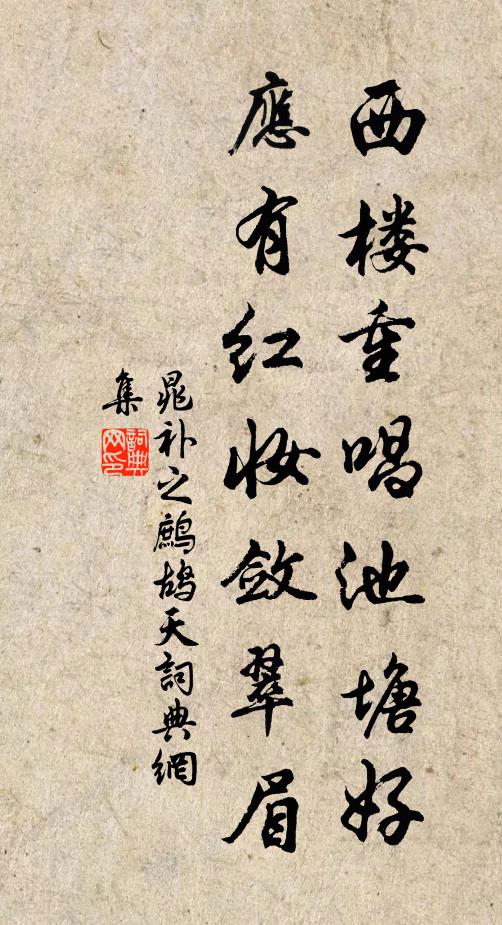 西楼重唱池塘好
應有红妆敛翠眉
晁补之鷓鴣天詞典網
集
詞典网印